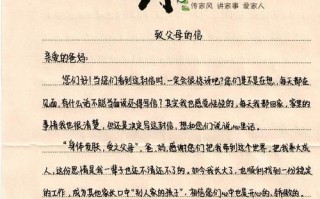 传家风 讲家事 爱家人
致父母的信
亲爱的爸妈:
您们好!当您们看到这封信时,一定会很惊讶吧?您们是不是在想,每天都在
见面,有什么话不能当面说还得写信?其实我也感觉怪怪的,每天都回家,家里的
事情我也很清楚,但还是决定写这封信,想和您们说说心里话。
"身体发肤,受之父母",爸、妈,感谢您们把我带到这个世界,把我养大成
人,这份恩情是我一辈子也还不清还不了的。如今我长大了,也顺利找到一份稳定
的工作,成为其他家长口中"别人家的孩子",相信您们心中也是开心的、骄傲的。